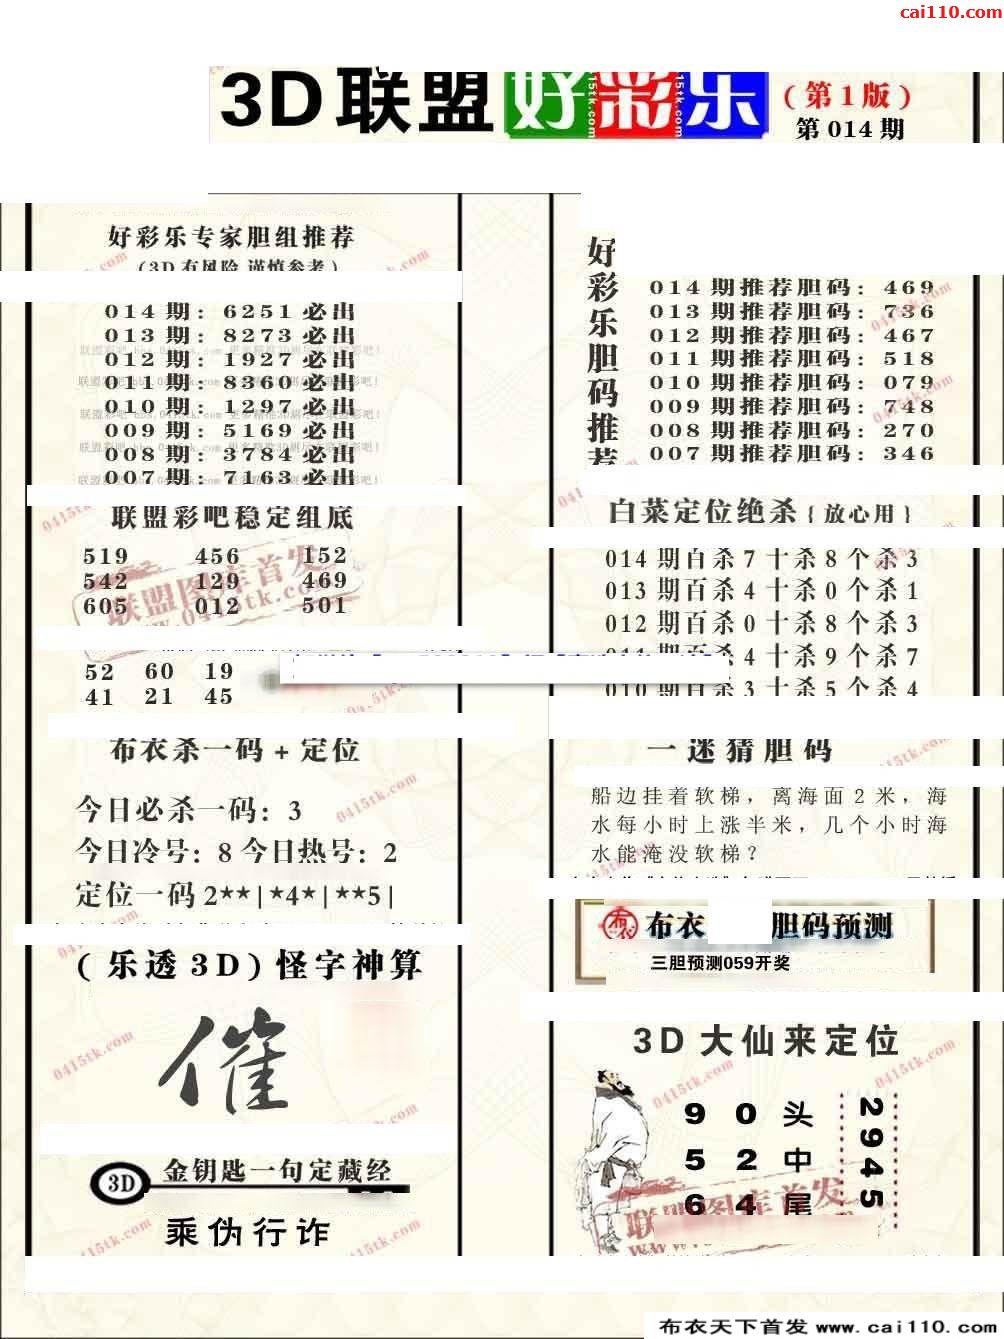 cai110.com
3D联盟好彩乐
(第1版)
第014期
好彩乐专家胆组推荐
(3D有风险 谨慎参考)
014期: 6251必出
013期: 8273必出
012期: 1927必出
011期: 8360必出
010期: 1297必出
009期: 5169必出
008期: 3784必出
007期: 7163必出
联盟彩吧稳定组底
519 456 152
542 129 469
605 012 501
52 60 19
41 21 45
布衣杀一码+定位
今日必杀一码: 3
今日冷号: 8 今日热号: 2
定位一码 2**|*4*|**5|
(乐透3D)怪字神算
催
3D 金钥匙一句定藏经
乘伪行诈
好彩乐胆码推荐
014期推荐胆码: 469
013期推荐胆码: 736
012期推荐胆码: 467
011期推荐胆码: 518
010期推荐胆码: 079
009期推荐胆码: 748
008期推荐胆码: 270
007期推荐胆码: 346
白菜定位绝杀{放心用}
014期百杀7十杀8个杀3
013期百杀4十杀0个杀1
012期百杀0十杀8个杀3
杀4十杀9个杀7
010期百杀3十杀5个杀4
一迷猜胆码
船边挂着软梯，离海面2米，海
水每小时上涨半米，几个小时海
水能淹没软梯？
布衣 胆码预测
三胆预测059开奖
3D大仙来定位
90头
52中
64尾
2945
联盟图库首发
www.0415tk.com
0415tk.com
布衣天下首发 www.cai110.com